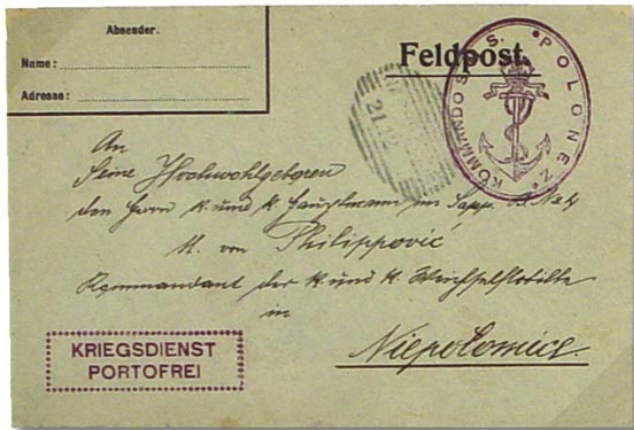 Absender.
Name:
Adresse:
Feldpost.
KOMMANDO S. S. "POLONEZ"
21.12
An
Seine Hochwohlgeboren
den Herrn k. und k. Hauptmann im Sapp. B. No 4
M. von Philippović
Kommandant der k. und k. Weichselflotille
in
Niepołomice.
KRIEGSDIENST
PORTOFREI